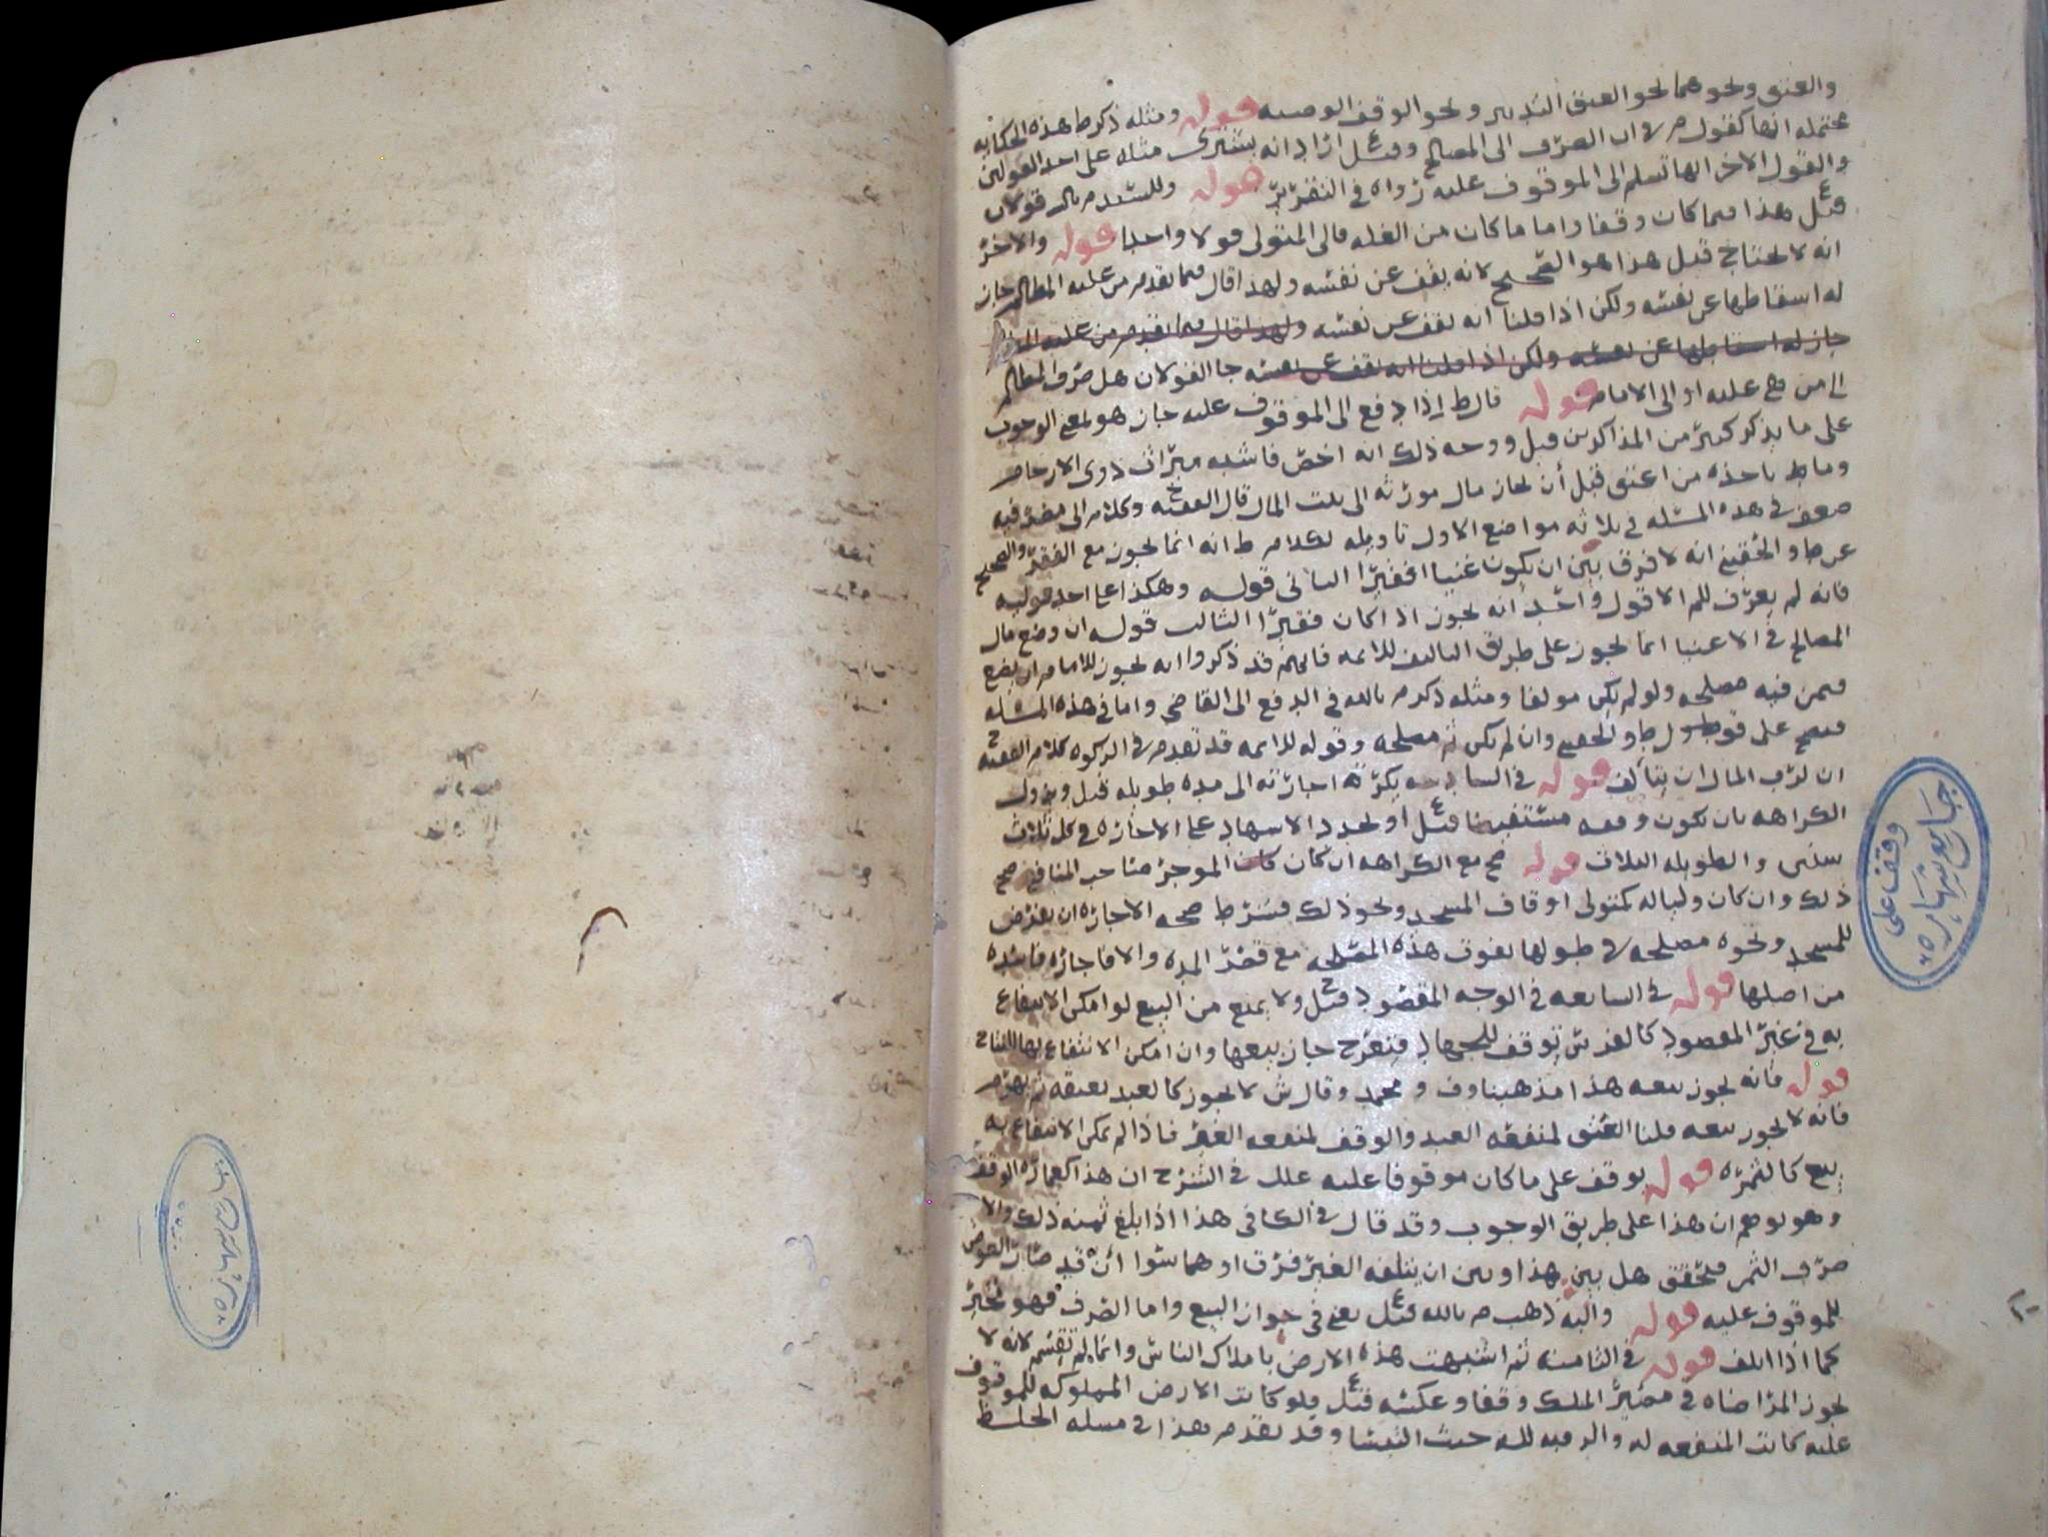 والعتق ونحوهما نحو العتق التدبير ونحو الوقف الوصيه قوله ومثله ذكر ط هذه الحكايه
محتمله انها كقول م في ان الصرف الى المصالح وقيل اراد انه يشترى مثله على احد القولين
والقول الاخر انها تسلم الى الموقوف عليه رواه في التقرير قوله وللسيد م بالله قولان
قيل هذا فيما كان وقفا واما ما كان من الغله فالى المتولى قولا واحدا قوله والاخر
انه لا يحتاج قيل هذا هو الصحيح لانه يقف عن نفسه ولهذا قال فيما تقدم من عليه المظالم جاز
له اسقاطها عن نفسه ولكن اذا قلنا انه يقف عن نفسه ولهذا قال فيما تقدم من عليه
جاز له اسقاطها عن نفسه ولكن اذا قلنا انه يقف عن نفسه جا القولان هل صرف المظالم
الى من هي عليه او الى الامام قوله قال ط اذا دفع الى الموقوف عليه جاز هو بمعنى الوجوب
على ما يذكر كثير من المذاكرين قيل ووجه ذلك انه اخص فاشبه ميراث ذوى الارحام
وما ياخذه من اعتق قبل أن يحاز مال مورثه الى بيت المال قال الفقيه ح وكلام الى مضر فيه
ضعف في هذه المسئله في ثلاثه مواضع الاول تاويله لكلام ط انه انما يجوز مع الفقر والصحيح
عن ط والحقيني انه لا فرق بين ان يكون غنيا او فقيرا الثاني قوله وهكذا على احد قوليه
فانه لم يعرف للم الا قول واحد أنه يجوز اذا كان فقيرا الثالث قوله ان وضع مال
المصالح في الاغنيا انما يجوز على طريق التاليف للايمه فانهم قد ذكروا انه يجوز للامام ان يضع
فيمن فيه مصلحه ولو لم يكن مولفا ومثله ذكر م بالله في الدفع الى القاضي واما في هذه المسئله
فيصح على قول ط والحقيني وان لم يكن ثم مصلحه وقوله للايمه قد تقدم في الزكوه كلام الفقيه ح
ان لرب المال ان يتألف قوله في السادسه يكره اجارته الى مده طويله قيل ويزول
الكراهه بان يكون وقفه مستفيضا قيل او يجدد الاشهاد على الاجازه في كل ثلاث
سنين والطويله الثلاث قوله صح مع الكراهه ان كان كان الموجر صاحب المنافع صح
ذلك وان كان وليا له كمتولى اوقاف المسجد ونحو ذلك فشرط صحه الاجاره ان يعرض
للمسجد ونحوه مصلحه في طولها بفوت هذه المصلحه مع قصر المده والا فاجاره فاسده
من اصلها قوله في السابعه في الوجه المقصود قيل ولا يمنع من البيع لو امكن الانتفاع
به في غير المقصود كالفرس توقف للجهاد فتعرج جاز بيعها وان امكن الانتفاع بها للنتاج
قوله فانه يجوز بيعه هذا مذهبنا وف ومحمد وقال ش لا يجوز كالعبد يعتقه ثم يهرم
فانه لا يجوز بيعه قلنا العتق لمنفعه العبد والوقف لمنفعه الغير فاذا لم يمكن الانتفاع به
بيع كالثمره قوله يوقف على ما كان موقوفا عليه علل في الشرح ان هذا كعماره الوقف
وهو يوهم ان هذا على طريق الوجوب وقد قال في الكافي هذا اذا بلغ ثمنه ذلك والا
صرف الثمن فيحقق هل بين هذا وبين ان يتلفه الغير فرق او هما سوا أن قد صار العوض
للموقوف عليه قوله واليه ذهب م بالله قيل يعني في جواز البيع واما الصرف فهو مخير
كما اذا اتلف قوله في الثامنه ثم اشتبهت هذه الارض باملاك الناس وانما لم تقسم لانه لا
يجوز المراضاه في مصير الملك وقفا وعكسه قيل فلو كانت الارض المملوكه للموقوف
عليه كانت المنفعه له والرقبه لله حيث التبسا وقد تقدم هذا في مسله الخلط
وقف على